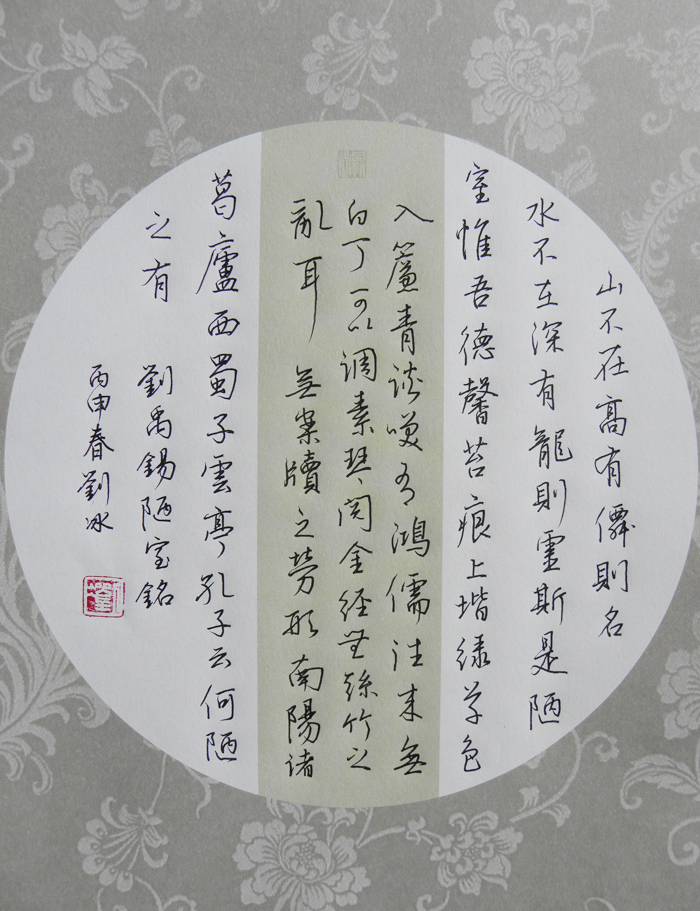 山不在高有僊則名
水不在深有龍則靈斯是陋
室惟吾德馨苔痕上堦绿草色
入簾青談笑有鴻儒往来無
白丁可以调素琴阅金經無絲竹之
亂耳無案牘之勞形南陽诸
葛廬西蜀子雲亭孔子云何陋
之有 劉禹錫陋室銘
丙申春劉冰